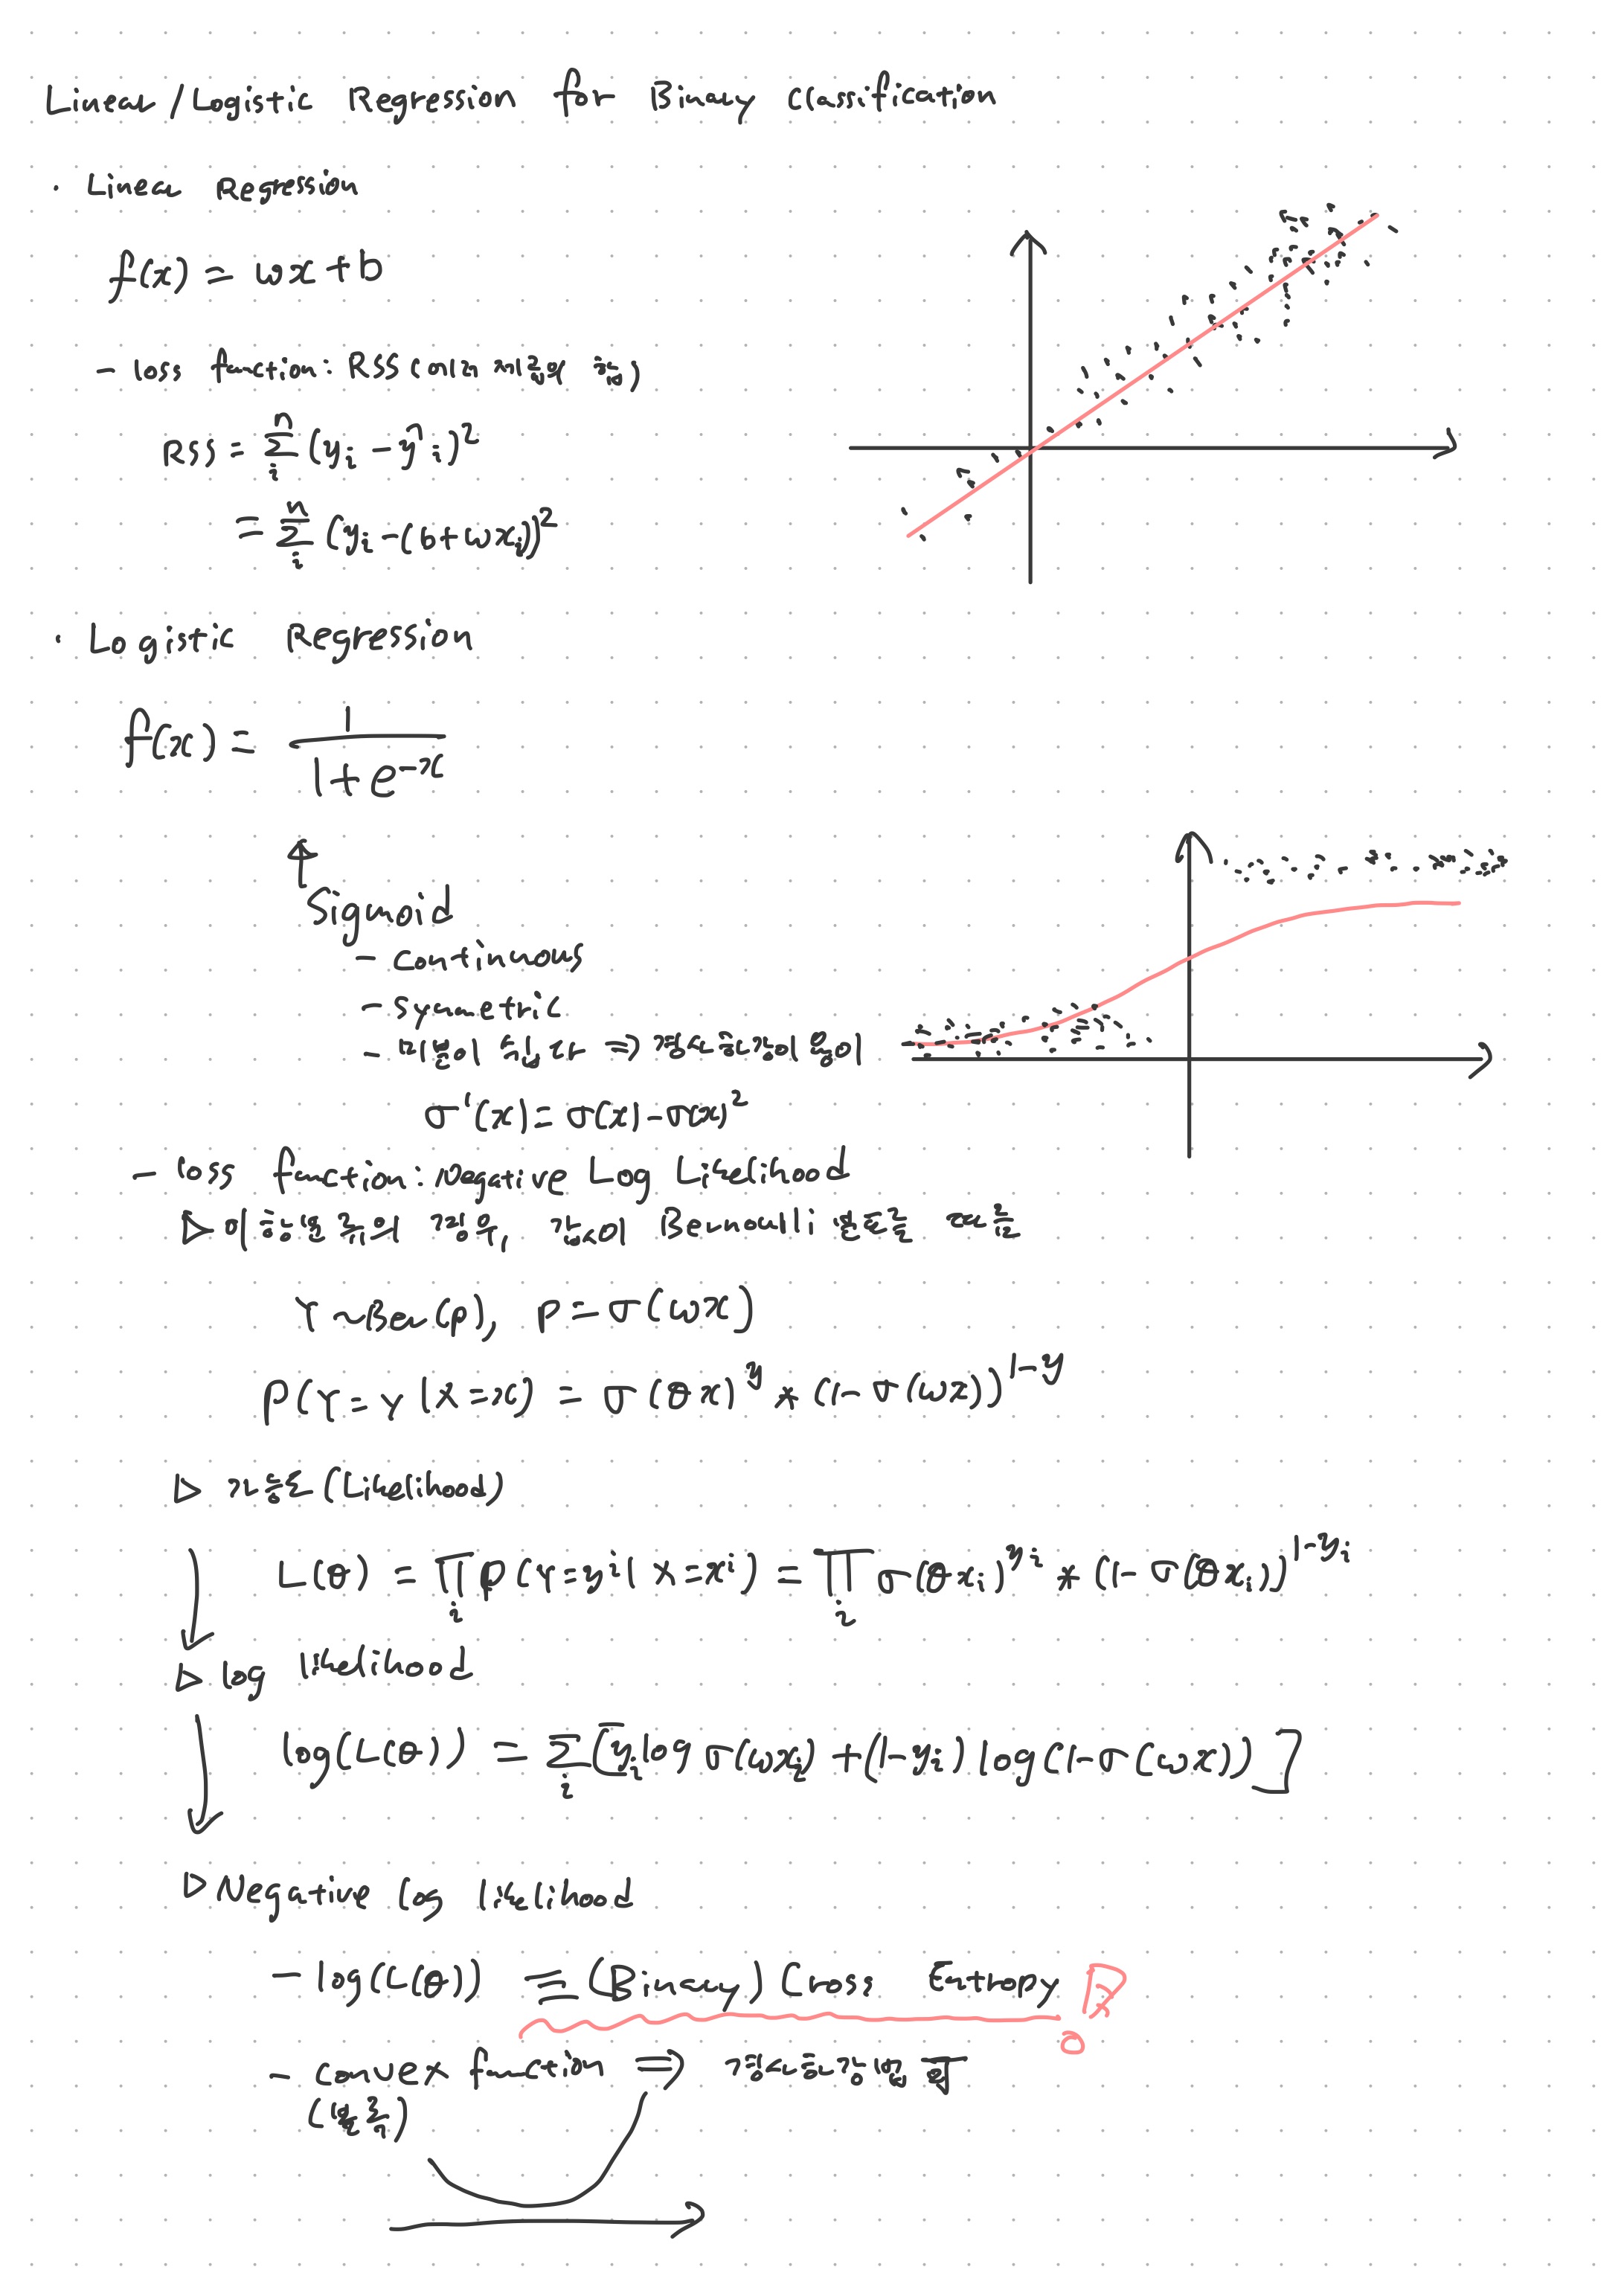 Linear/Logistic Regression for Binary Classification
· Linear Regression
f(x) = wx+b
- loss function: RSS (에러 제곱의 합)
RSS = Σ_i^n (y_i - ŷ_i)^2
= Σ_i^n (y_i - (b+wx_i))^2
· Logistic Regression
f(x) = 1 / (1+e^-x)
↑
Sigmoid
- continuous
- symmetric
- 미분이 쉽다 => 경사하강이 용이
σ'(x) = σ(x) - σ(x)^2
- loss function: Negative Log Likelihood
▷ 이항분류의 경우, 값이 Bernoulli 분포를 따름
Y ~ Ber(p), p = σ(wx)
P(Y=y|X=x) = σ(θx)^y * (1-σ(wx))^1-y
▷ 가능도 (Likelihood)
L(θ) = Π_i P(Y=y^i|X=x^i) = Π_i σ(θx_i)^y_i * (1-σ(θx_i))^1-y_i
▷ log likelihood
log(L(θ)) = Σ_i [y_i log σ(wx_i) + (1-y_i) log(1-σ(wx))]
▷ Negative log likelihood
- log(L(θ)) ≡ (Binary) Cross Entropy !
- convex function => 경사하강법 픽
(볼록)